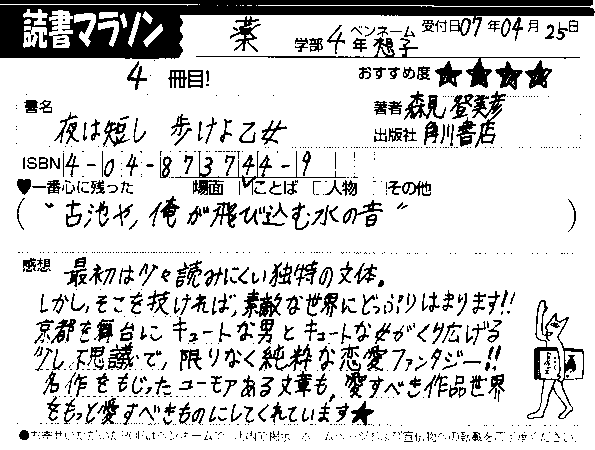 読書マラソン
薬 学部 4 年 ペンネーム 想子 受付日07年04月25日
4 冊目! おすすめ度 ★★★★
書名 夜は短し 歩けよ乙女
著者 森見登美彦
出版社 角川書店
ISBN 4-04-873744-9
♥一番心に残った □場面 ☑ことば □人物 □その他
("古池や,俺が飛び込む水の音")
感想 最初は少々読みにくい独特の文体。
しかし,そこを抜ければ,素敵な世界にどっぷりはまります!!
京都を舞台にキュートな男とキュートな女がくり広げる
少し不思議で,限りなく純粋な恋愛ファンタジー!!
名作をもじったユーモアある文章も,愛すべき作品世界
をもっと愛すべきものにしてくれています★